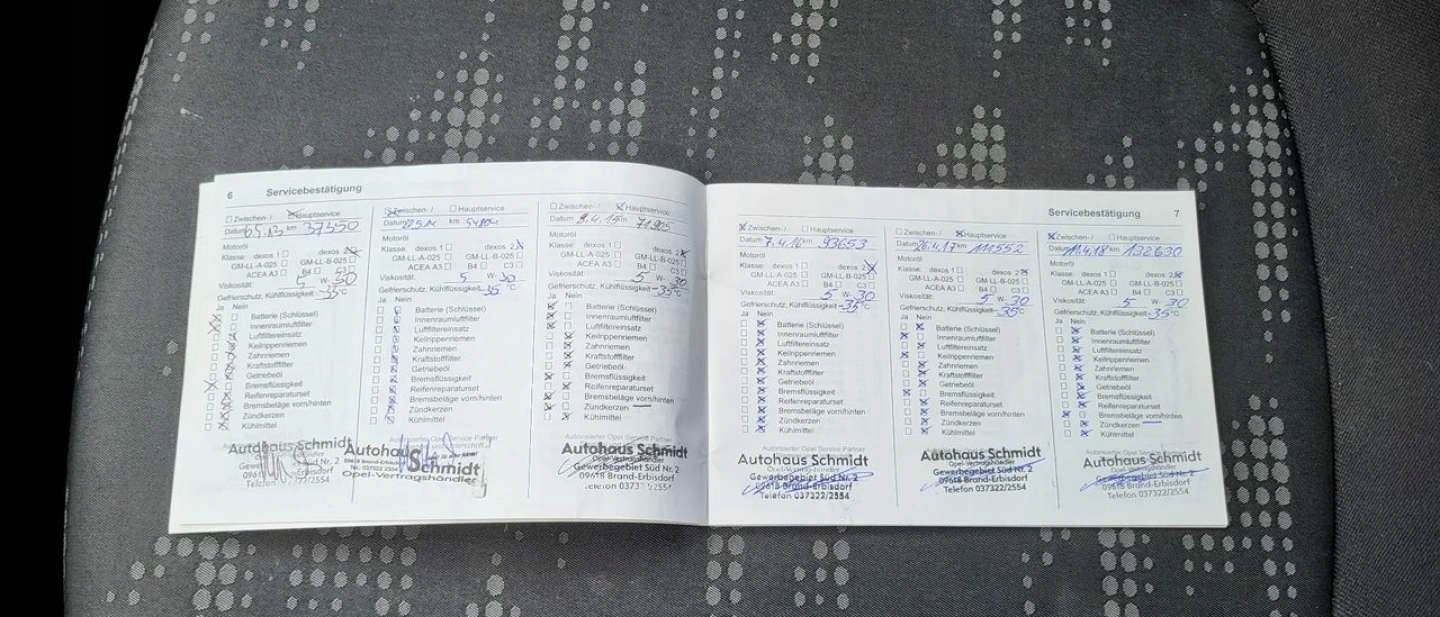 6 Servicebestätigung
Zwischen- / Hauptservice
Datum 6.5.13 km 37350
Motoröl
Klasse: dexos 1 dexos 2
GM-LL-A-025 GM-LL-B-025
ACEA A3 B4 C3
Viskosität 5 W- 30
Gefrierschutz, Kühlflüssigkeit -35°C
Ja Nein
Batterie (Schlüssel)
Innenraumluftfilter
Luftfiltereinsatz
Keilrippenriemen
Zahnriemen
Kraftstofffilter
Getriebeöl
Bremsflüssigkeit
Reifenreparaturset
Bremsbeläge vorn/hinten
Zündkerzen
Kühlmittel
Autohaus Schmidt
Telefon
Zwischen- / Hauptservice
Datum km
Motoröl
Klasse: dexos 1 dexos 2
GM-LL-A-025 GM-LL-B-025
ACEA A3 B4 C3
Viskosität 5 W- 30
Gefrierschutz, Kühlflüssigkeit 35 °C
Ja Nein
Batterie (Schlüssel)
Innenraumluftfilter
Luftfiltereinsatz
Keilrippenriemen
Zahnriemen
Kraftstofffilter
Getriebeöl
Bremsflüssigkeit
Reifenreparaturset
Bremsbeläge vorn/hinten
Zündkerzen
Kühlmittel
Autohaus Schmidt
Opel-Vertragshändler
Zwischen- / Hauptservice
Datum 9.4.15 km 71925
Motoröl
Klasse: dexos 1 dexos 2
GM-LL-A-025 GM-LL-B-025
ACEA A3 B4 C3
Viskosität 5 W- 30
Gefrierschutz, Kühlflüssigkeit -35°C
Ja Nein
Batterie (Schlüssel)
Innenraumluftfilter
Luftfiltereinsatz
Keilrippenriemen
Zahnriemen
Kraftstofffilter
Getriebeöl
Bremsflüssigkeit
Reifenreparaturset
Bremsbeläge vorn/hinten
Zündkerzen
Kühlmittel
Autorisierter Opel Service Partner
Autohaus Schmidt
Opel-Vertragshändler
Gewerbegebiet Süd Nr. 2
09618 Brand-Erbisdorf
Telefon 037322/2554
Servicebestätigung 7
Zwischen- / Hauptservice
Datum 7.4.16 km 93653
Motoröl
Klasse: dexos 1 dexos 2
GM-LL-A-025 GM-LL-B-025
ACEA A3 B4 C3
Viskosität 5 W- 30
Gefrierschutz, Kühlflüssigkeit -35°C
Ja Nein
Batterie (Schlüssel)
Innenraumluftfilter
Luftfiltereinsatz
Keilrippenriemen
Zahnriemen
Kraftstofffilter
Getriebeöl
Bremsflüssigkeit
Reifenreparaturset
Bremsbeläge vorn/hinten
Zündkerzen
Kühlmittel
Autorisierter Opel Service Partner
Autohaus Schmidt
Opel-Vertragshändler
Gewerbegebiet Süd Nr. 2
09618 Brand-Erbisdorf
Telefon 037322/2554
Zwischen- / Hauptservice
Datum 26.4.17 km 111552
Motoröl
Klasse: dexos 1 dexos 2
GM-LL-A-025 GM-LL-B-025
ACEA A3 B4 C3
Viskosität 5 W- 30
Gefrierschutz, Kühlflüssigkeit -35°C
Ja Nein
Batterie (Schlüssel)
Innenraumluftfilter
Luftfiltereinsatz
Keilrippenriemen
Zahnriemen
Kraftstofffilter
Getriebeöl
Bremsflüssigkeit
Reifenreparaturset
Bremsbeläge vorn/hinten
Zündkerzen
Kühlmittel
Autorisierter Opel Service Partner
Autohaus Schmidt
Opel-Vertragshändler
Gewerbegebiet Süd Nr. 2
09618 Brand-Erbisdorf
Telefon 037322/2554
Zwischen- / Hauptservice
Datum 11.4.18 km 132630
Motoröl
Klasse: dexos 1 dexos 2
GM-LL-A-025 GM-LL-B-025
ACEA A3 B4 C3
Viskosität 5 W- 30
Gefrierschutz, Kühlflüssigkeit -35°C
Ja Nein
Batterie (Schlüssel)
Innenraumluftfilter
Luftfiltereinsatz
Keilrippenriemen
Zahnriemen
Kraftstofffilter
Getriebeöl
Bremsflüssigkeit
Reifenreparaturset
Bremsbeläge vorn/hinten
Zündkerzen
Kühlmittel
Autorisierter Opel Service Partner
Autohaus Schmidt
Opel-Vertragshändler
Gewerbegebiet Süd Nr. 2
09618 Brand-Erbisdorf
Telefon 037322/2554